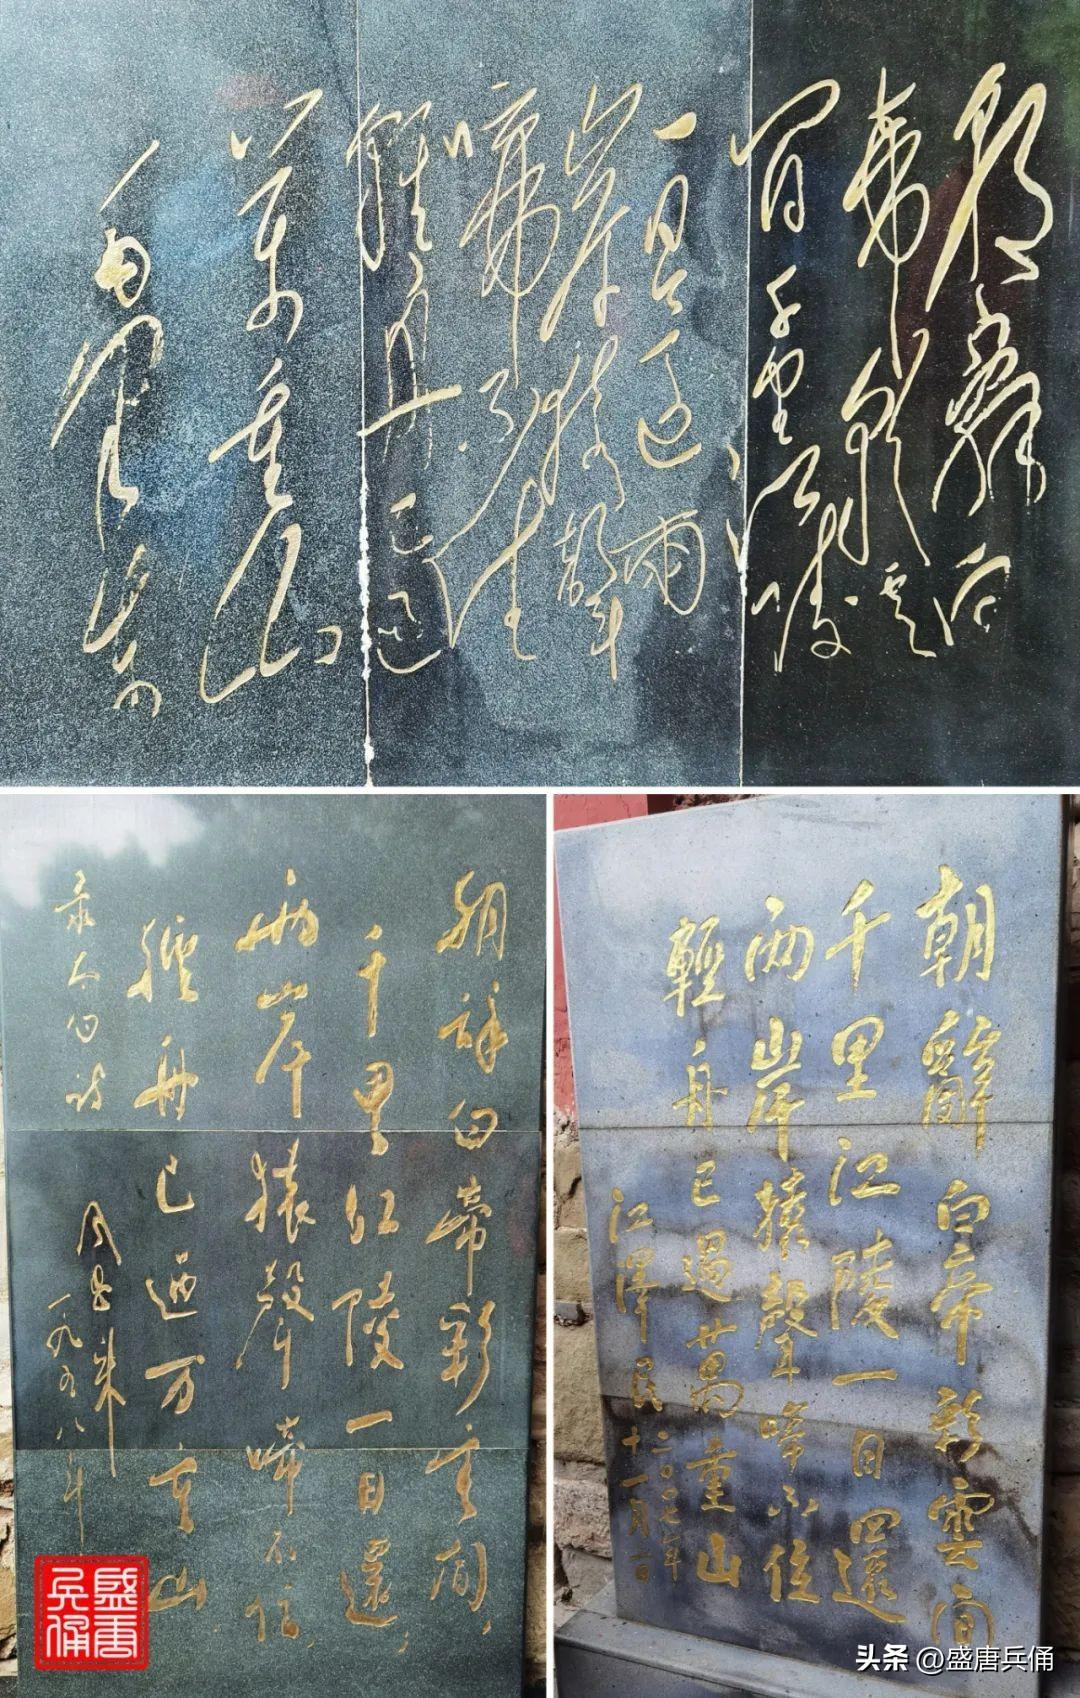 朝辭白
帝彩云
间千里江陵
一日还两
岸猿聲
啼不住
輕舟已过
萬重山
朝辞白帝彩云间，
千里江陵一日還；
两岸猿声啼不住，
轻舟已过万重山
录太白诗
周恩来
一九五八年
朝辭白帝彩雲间
千里江陵一日還
两岸猿聲啼不住
輕舟已過萬重山
江澤民
二〇〇七年
十一月一日
盛唐兵俑
头条 @盛唐兵俑